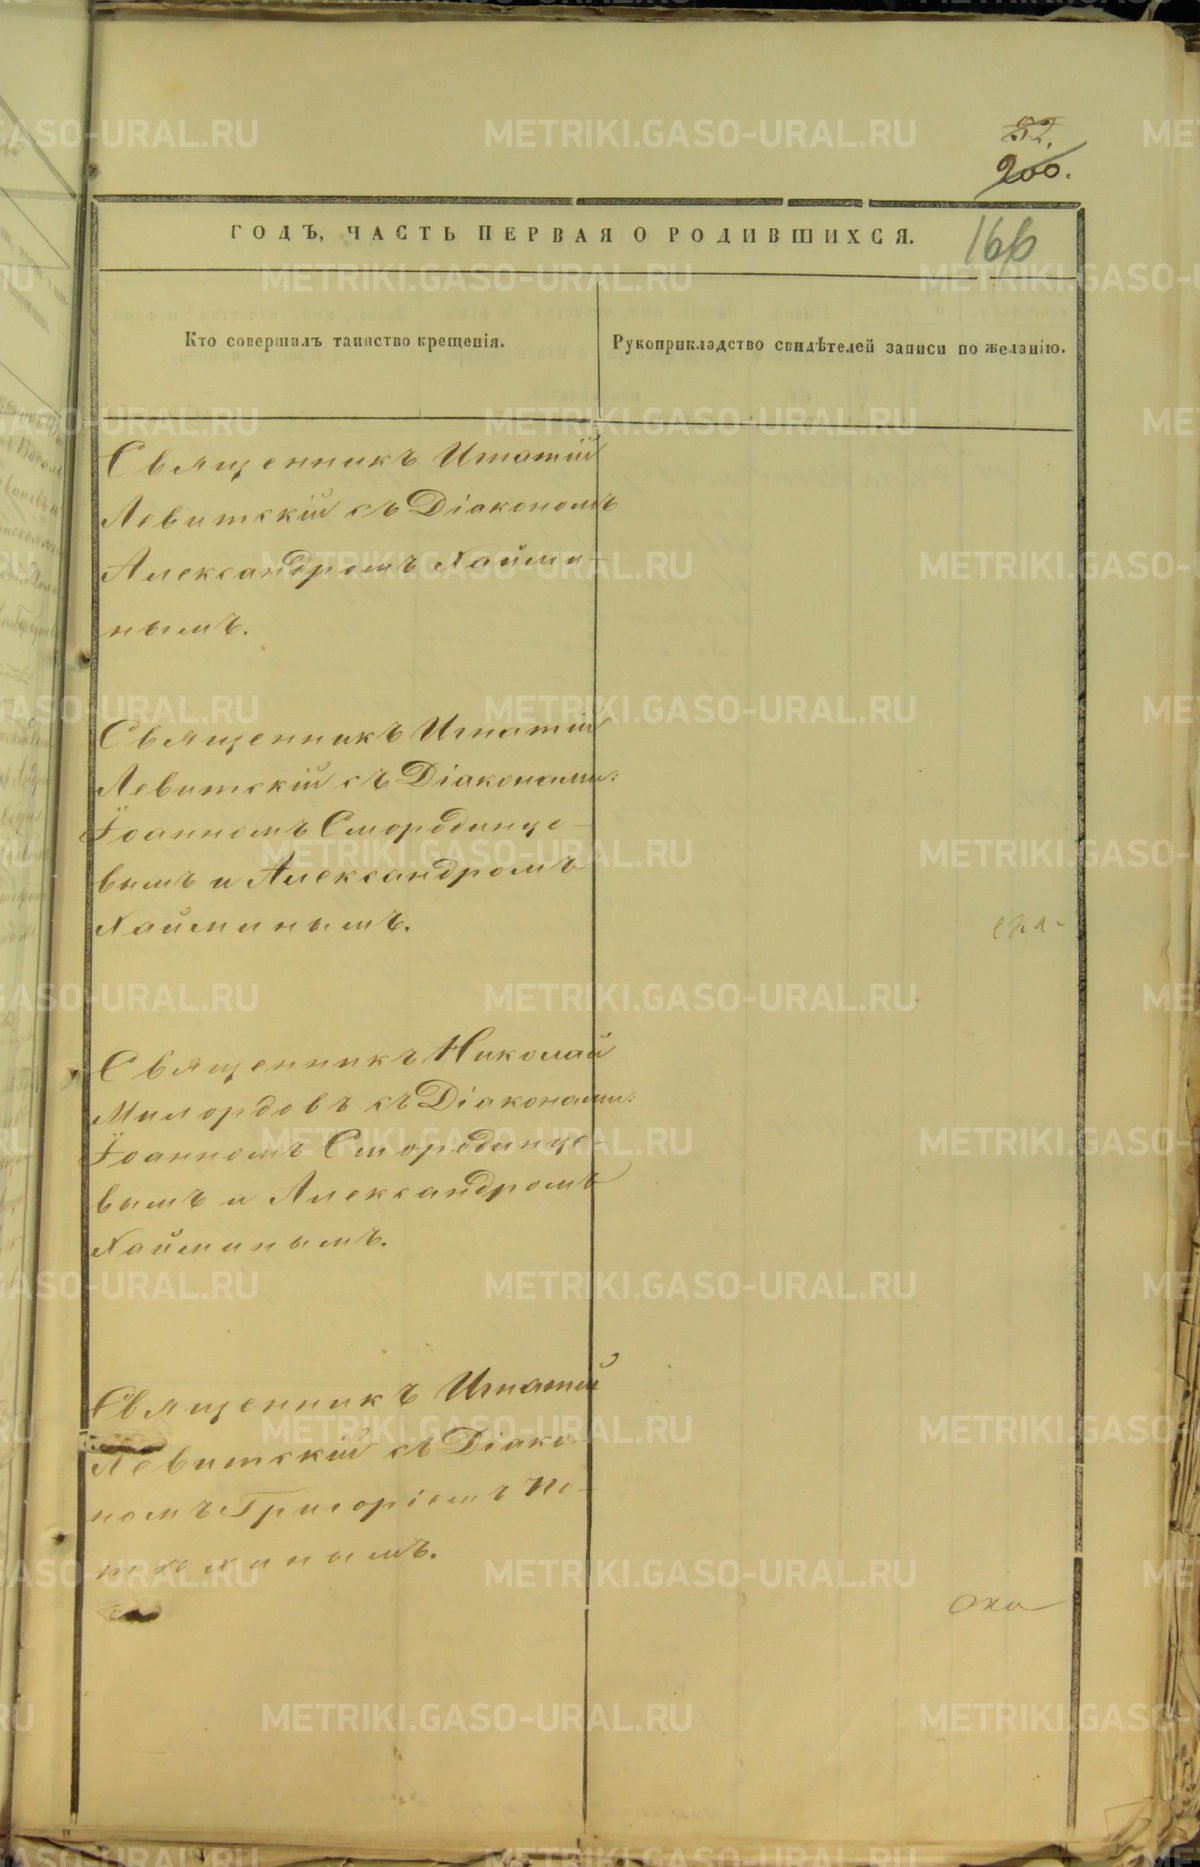 52.
200.
166
ГОДЪ, ЧАСТЬ ПЕРВАЯ О РОДИВШИХСЯ.
Кто совершилъ таинство крещенія.
Рукоприкладство свидѣтелей записи по желанію.
Священникъ Игнатій
Левитскій съ Діакономъ
Александромъ Хайми-
нымъ.
Священникъ Игнатій
Левитскій съ Діаконами:
Іоанномъ Смородинце-
вымъ и Александромъ
Хайминымъ.
Священникъ Николай
Милордовъ съ Діаконами:
Іоанномъ Смородинце-
вымъ и Александромъ
Хайминымъ.
Священникъ Игнатій
Левитскій съ Діако-
номъ Григоріемъ По-
тюхинымъ.
METRIKI.GASO-URAL.RU